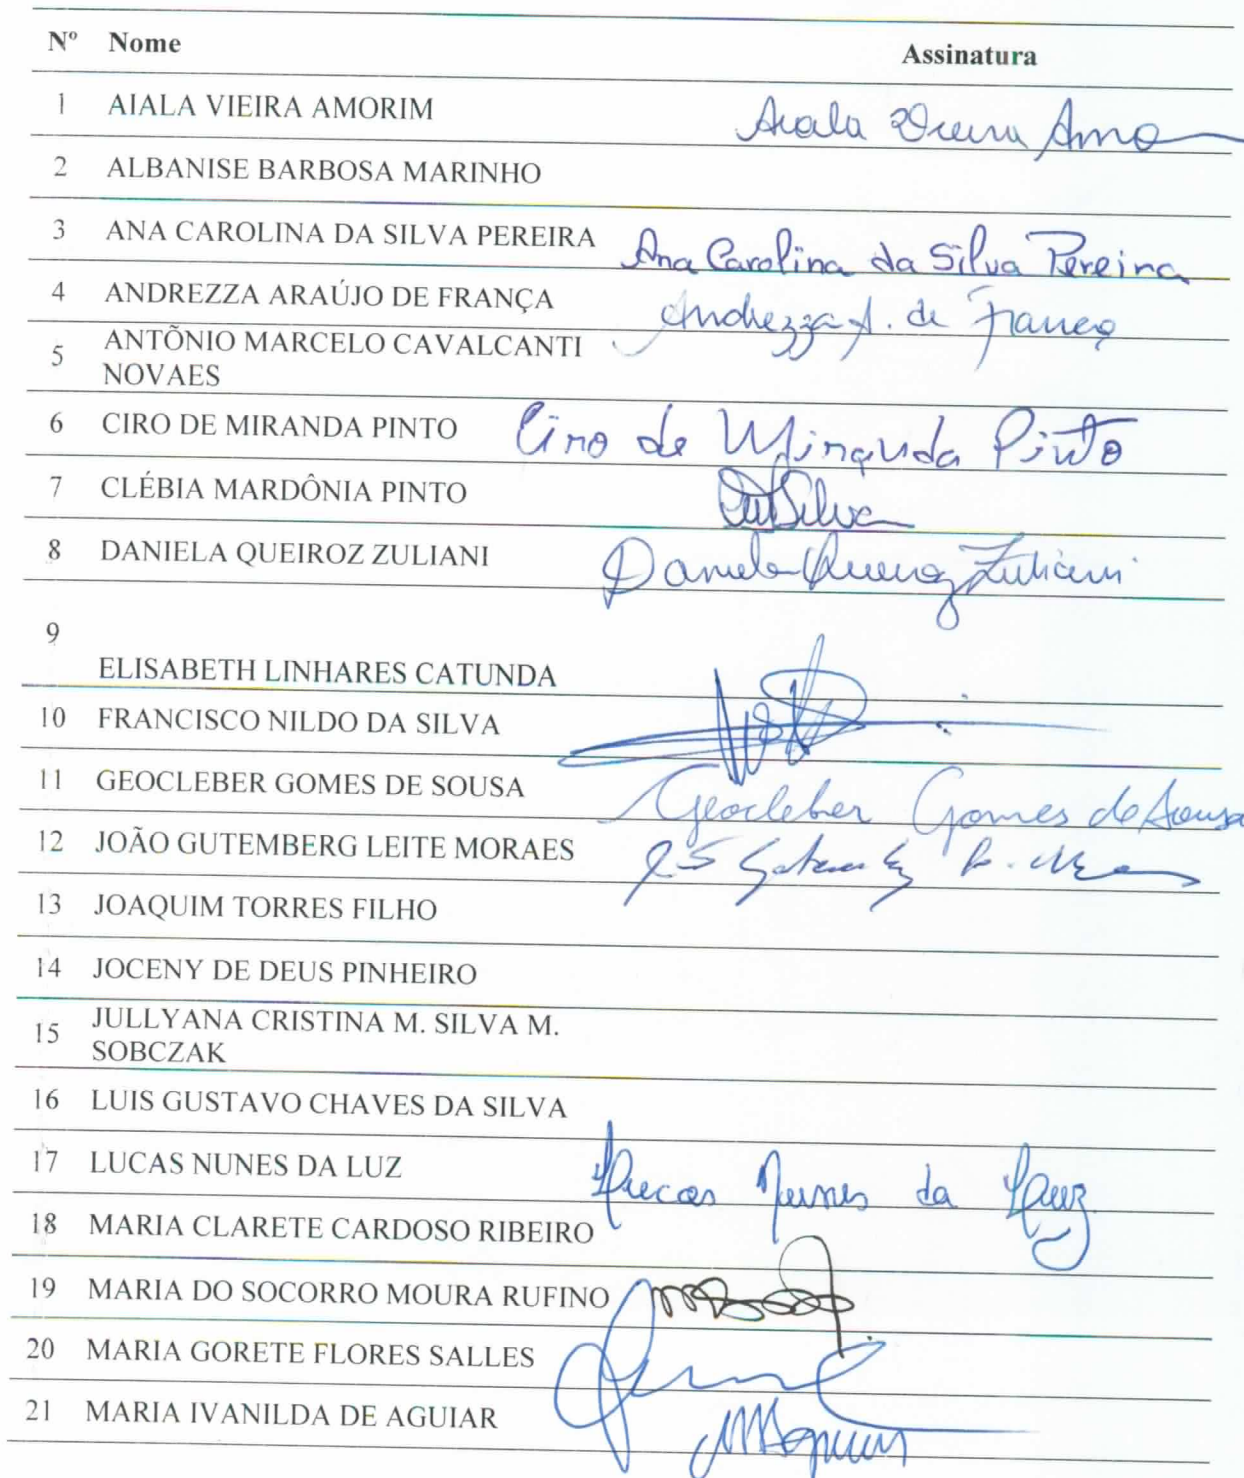 Nº Nome Assinatura
1 AIALA VIEIRA AMORIM Aiala Vieira Amo
2 ALBANISE BARBOSA MARINHO
3 ANA CAROLINA DA SILVA PEREIRA Ana Carolina da Silva Pereira
4 ANDREZZA ARAÚJO DE FRANÇA Andrezza A. de França
5 ANTÕNIO MARCELO CAVALCANTI
NOVAES
6 CIRO DE MIRANDA PINTO Ciro de Miranda Pinto
7 CLÉBIA MARDÔNIA PINTO Silva
8 DANIELA QUEIROZ ZULIANI Daniela Queiroz Zuliani
9
ELISABETH LINHARES CATUNDA
10 FRANCISCO NILDO DA SILVA
11 GEOCLEBER GOMES DE SOUSA Geocleber Gomes de Sousa
12 JOÃO GUTEMBERG LEITE MORAES
13 JOAQUIM TORRES FILHO
14 JOCENY DE DEUS PINHEIRO
15 JULLYANA CRISTINA M. SILVA M.
SOBCZAK
16 LUIS GUSTAVO CHAVES DA SILVA
17 LUCAS NUNES DA LUZ Lucas Nunes da Luz
18 MARIA CLARETE CARDOSO RIBEIRO
19 MARIA DO SOCORRO MOURA RUFINO
20 MARIA GORETE FLORES SALLES
21 MARIA IVANILDA DE AGUIAR